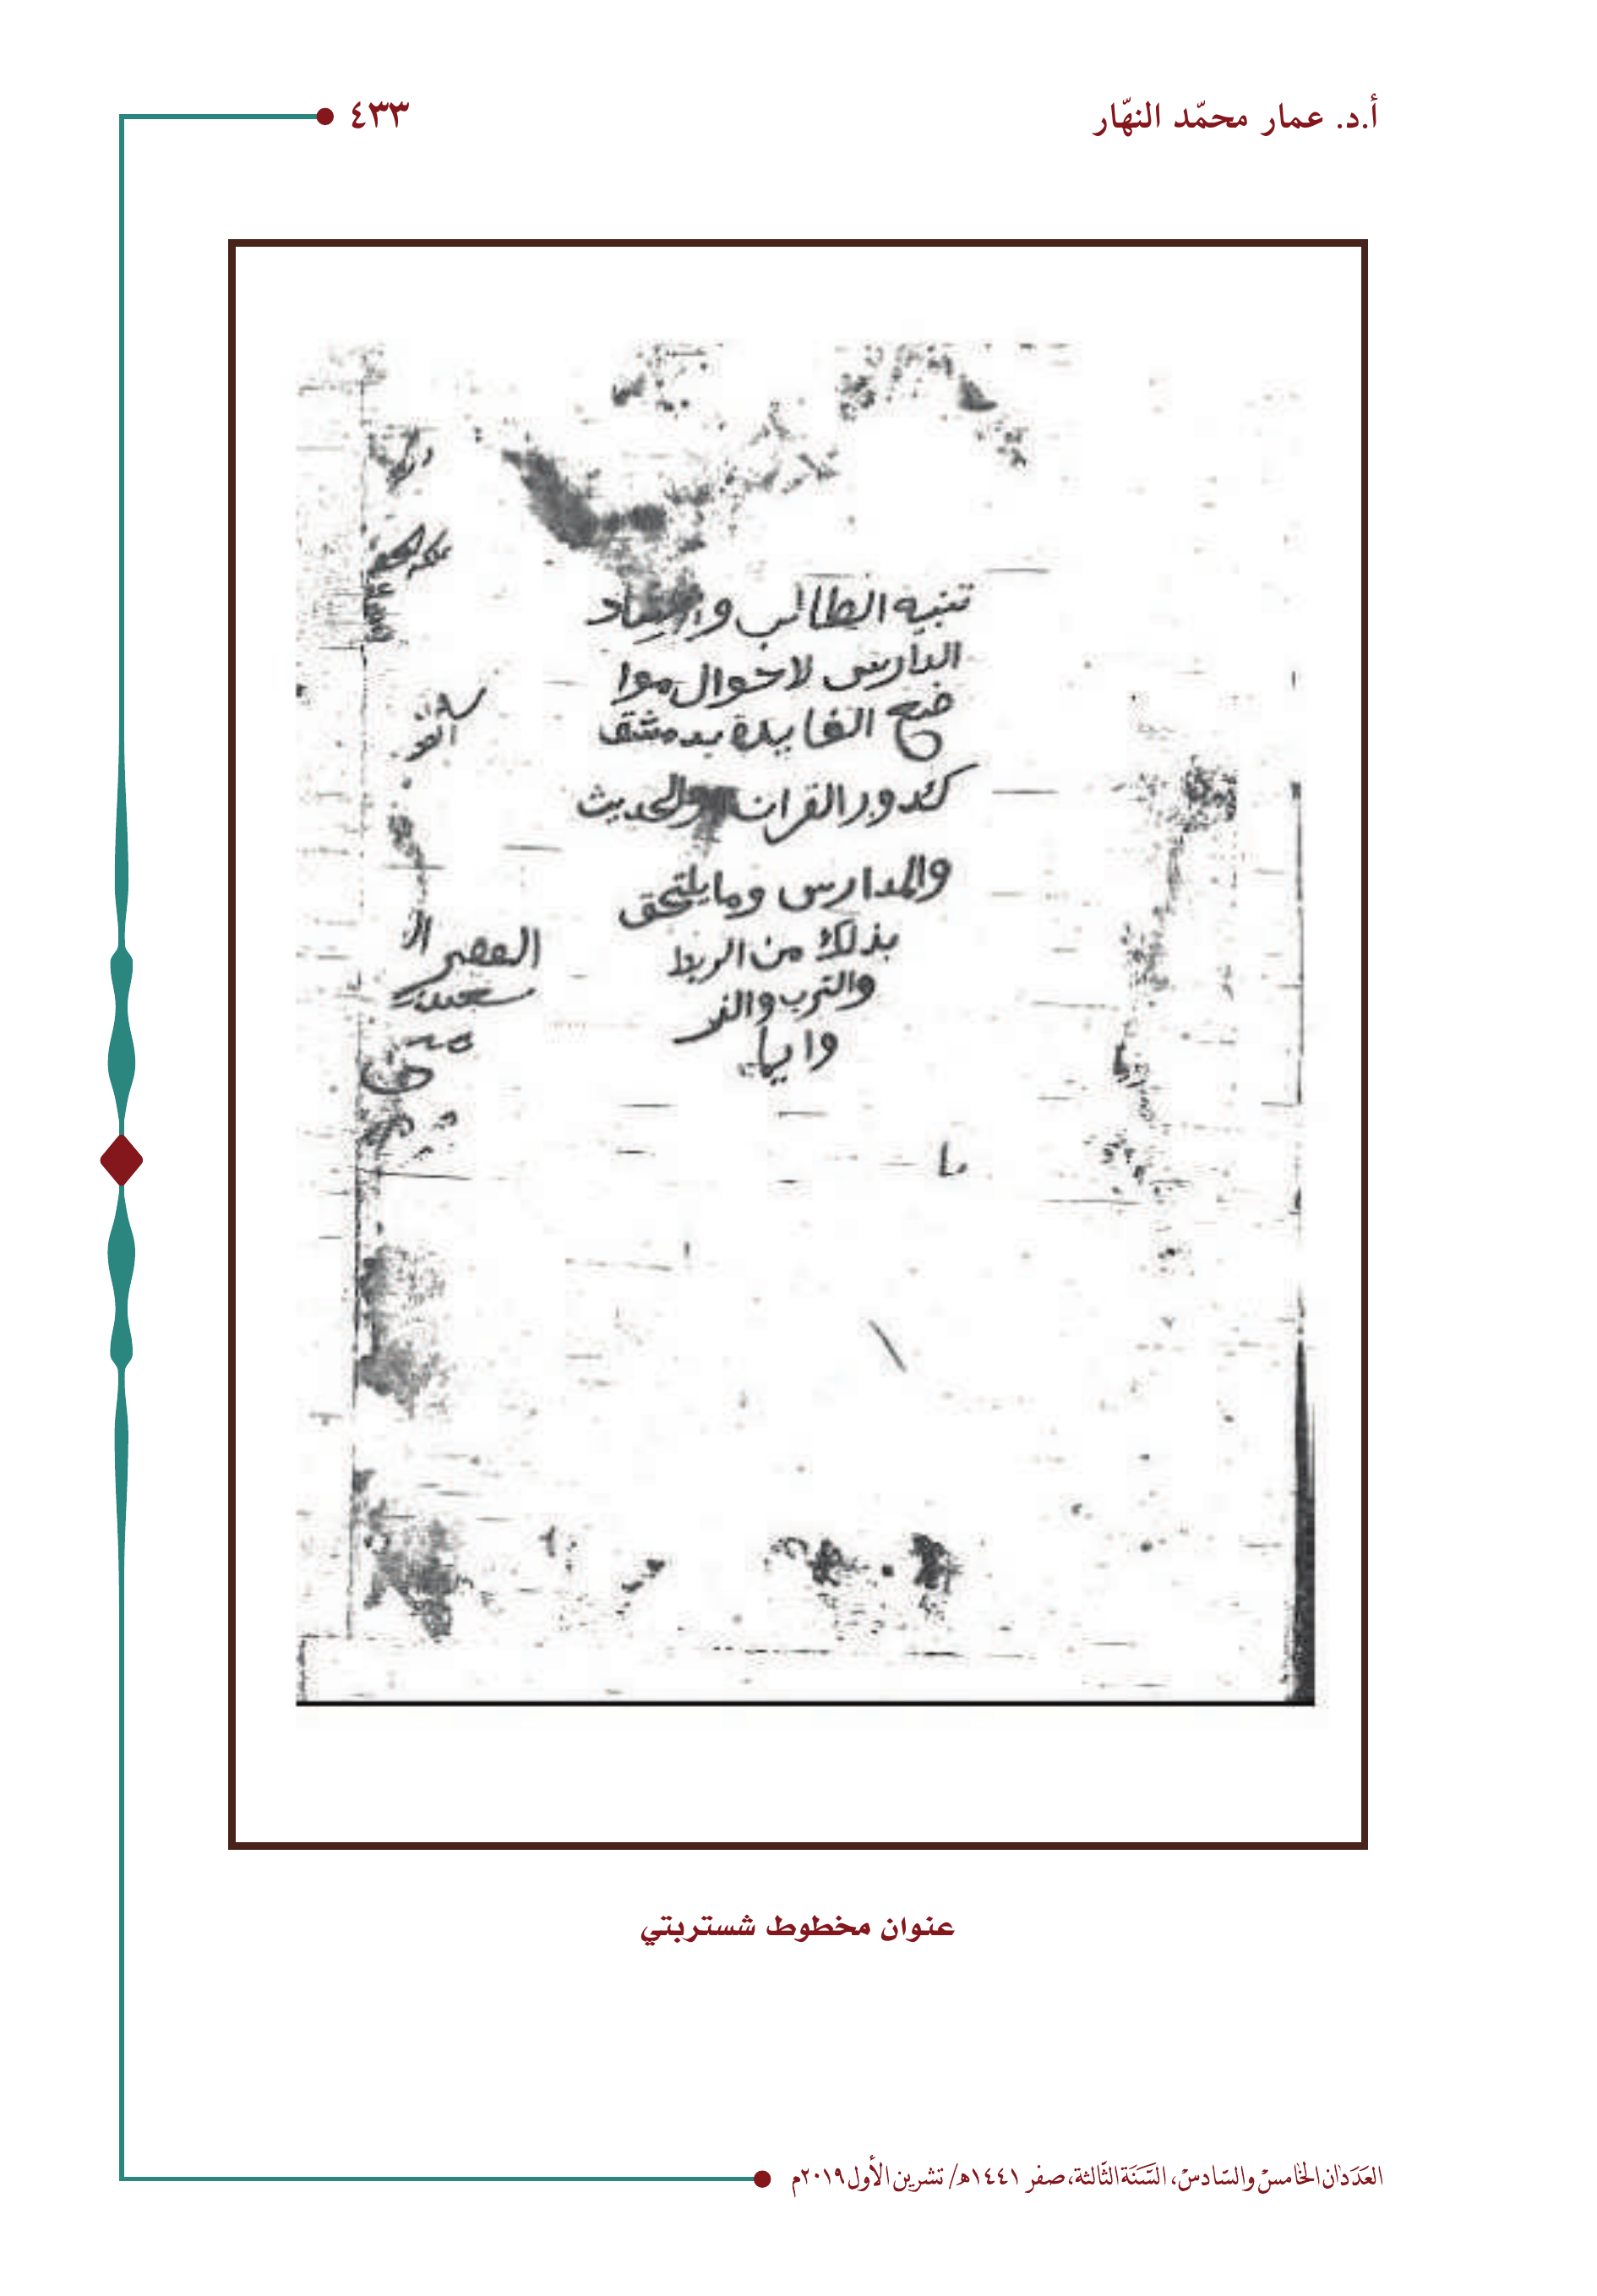 أ.د. عمار محمّد النهّار
٤٣٣
تنبيه الطالب وارشاد
الدارس لاحوال موا
ضع الفايدة بدمشق
كدور القران والحديث
والمدارس وما يلتحق
بذلك من الربط
والترب والز
وايا
عنوان مخطوط شستربتي
العَدَدان الخامسْ والسّادسْ، السَّنَة الثّالثة، صفر ١٤٤١هـ/ تشرين الأول ٢٠١٩م